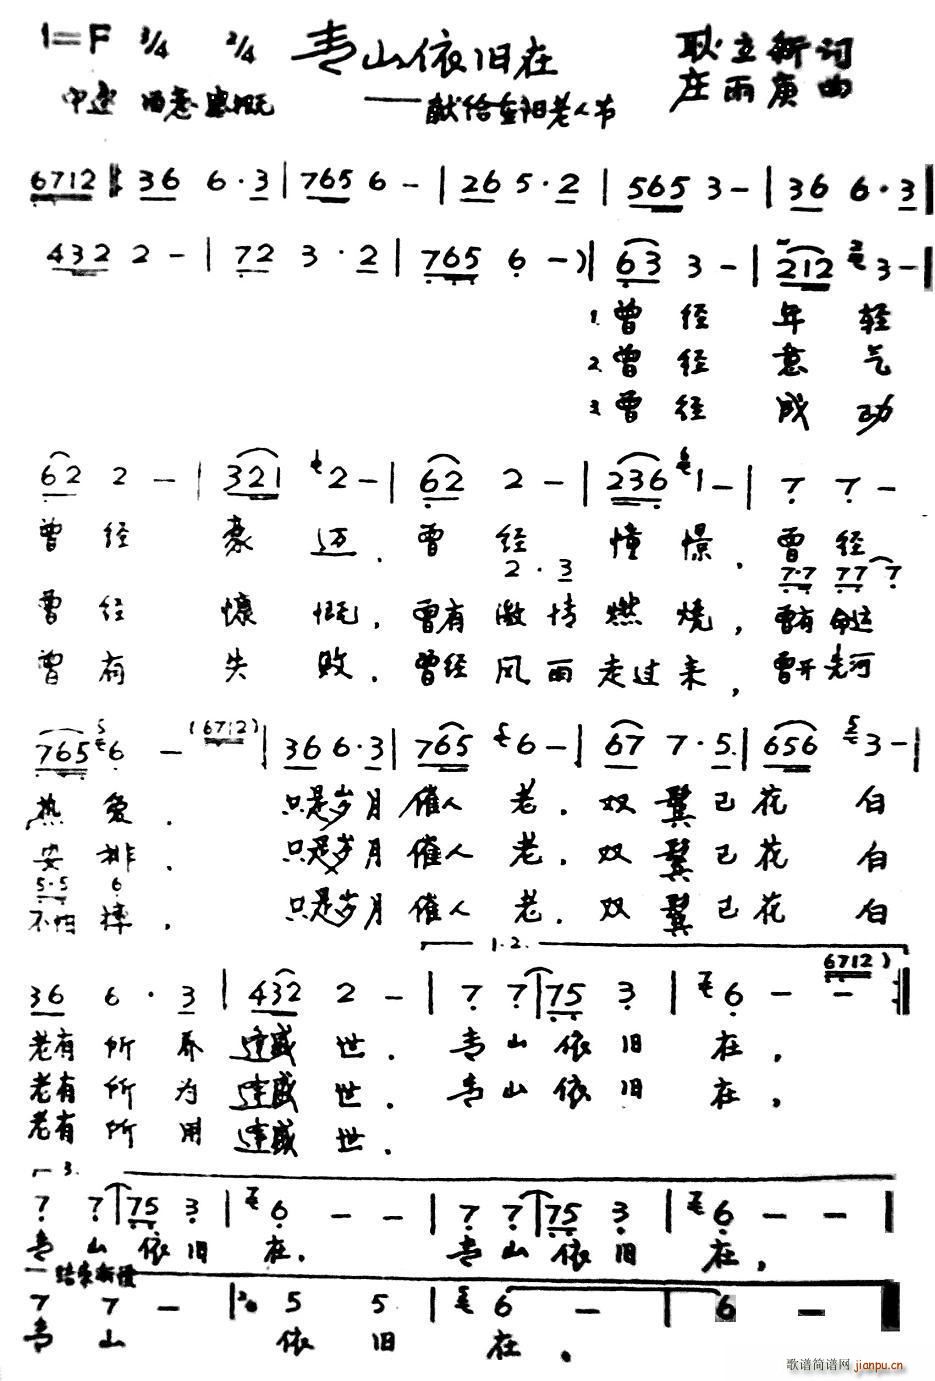 1=F 3/4 2/4 青山依旧在 耿立新词
中速 感慨 ——献给重阳老人节 庄雨庚曲
6712 36 6·3 | 765 6 - | 26 5·2 | 565 3 - | 36 6·3 |
432 2 - | 72 3·2 | 765 6 - ) | 63 3 - | 212 3 - |
1.曾经年轻
2.曾经意气
3.曾经成功
62 2 - | 321 2 - | 62 2 - | 236 1 - | 7 7 -
曾经豪迈.曾经憧憬.曾经
2·3 7·7 77 7
曾经慷慨,曾有激情燃烧,曾有命运
曾有失败.曾经风雨走过来,曾开先河
765 6 - (6712) | 36 6·3 | 765 6 - | 67 7·5 | 656 3 - |
热爱.只是岁月催人老.双鬓已花白
安排.只是岁月催人老.双鬓已花白
5·5 6
不怕摔.只是岁月催人老.双鬓已花白
1.2.
36 6·3 | 432 2 - | 7 7 | 75 3 | 6 - - 6712)
老有所养逢盛世.青山依旧在,
老有所为逢盛世.青山依旧在,
老有所用逢盛世.
3.
7 7 | 75 3 | 6 - - | 7 7 | 75 3 | 6 - -
青山依旧在.青山依旧在,
结束渐慢
7 7 - | 5 5 | 6 - | 6 -
青山依旧在.
歌谱简谱网 jianpu.cn